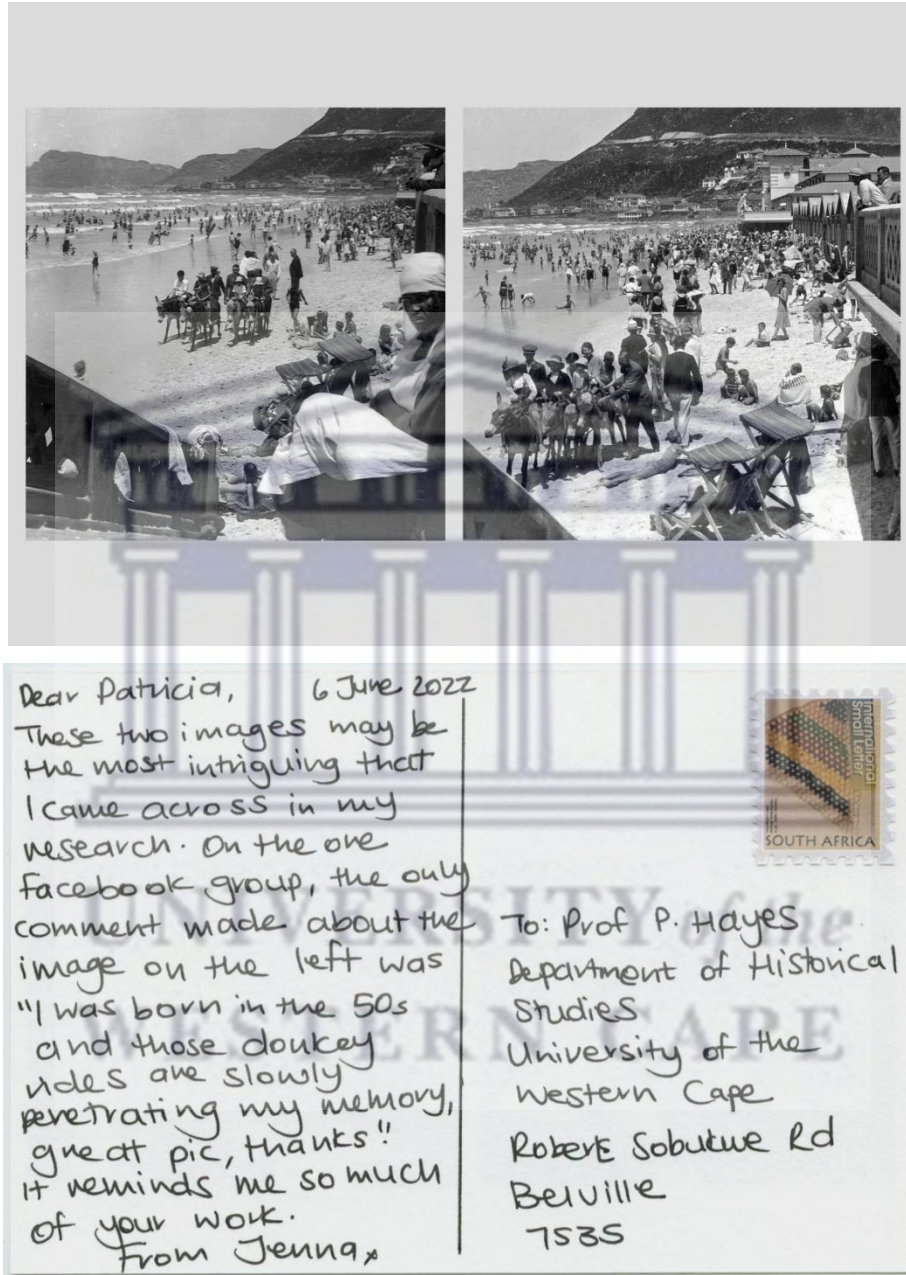 Dear Patricia, 6 June 2022
These two images may be
the most intriguing that
I came across in my
research. On the one
facebook group, the only
comment made about the
image on the left was
"I was born in the 50s
and those donkey
rides are slowly
penetrating my memory,
great pic, thanks"!
It reminds me so much
of your work.
From Jenna x
International
Small Letter
SOUTH AFRICA
To: Prof P. Hayes
Department of Historical
Studies
University of the
Western Cape
Robert Sobukwe Rd
Belville
7535
UNIVERSITY of the
WESTERN CAPE